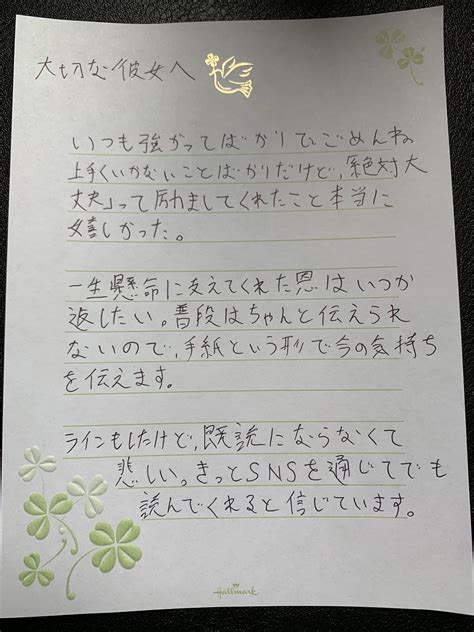 大切な彼女へ
いつも強がってばかりでごめんね
上手くいかないことばかりだけど、「絶対大
丈夫」って励ましてくれたこと本当に
嬉しかった。
一生懸命に支えてくれた恩はいつか
返したい。普段はちゃんと伝えられ
ないので、手紙という形で今の気持ち
を伝えます。
ラインもしたけど、既読にならなくて
悲しい。きっとSNSを通じてでも
読んでくれると信じています。
Hallmark